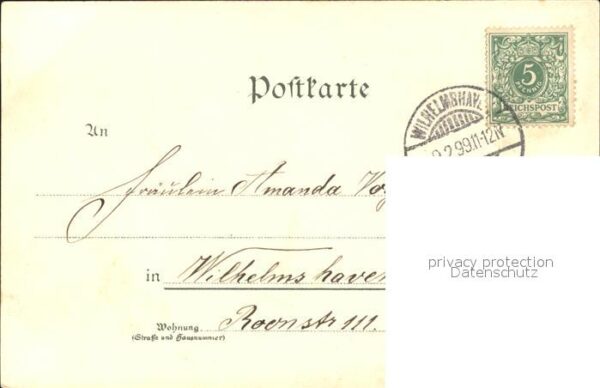 Postkarte
5
PFENNIG
REICHSPOST
WILHELMSHAVEN
9.2.99.11-12N
An
Fräulein Amanda
in Wilhelmshaven
Wohnung Roonstr 111.
(Straße und Hausnummer)
privacy protection
Datenschutz